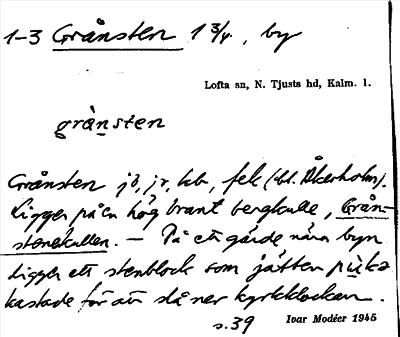 1-3 Grånsten 1 3/4, by
Lofta sn, N. Tjusts hd, Kalm. l.
grånsten
Grånsten jb, jr, kb, fek (bl. Åkerholm).
Ligger på en hög brant bergkulle, Grån-
stenskullen. — På ett gärde nära byn
ligger ett stenblock som jätten puks
kastade för att slå ner kyrkklockan.
s.39 Ivar Modéer 1945